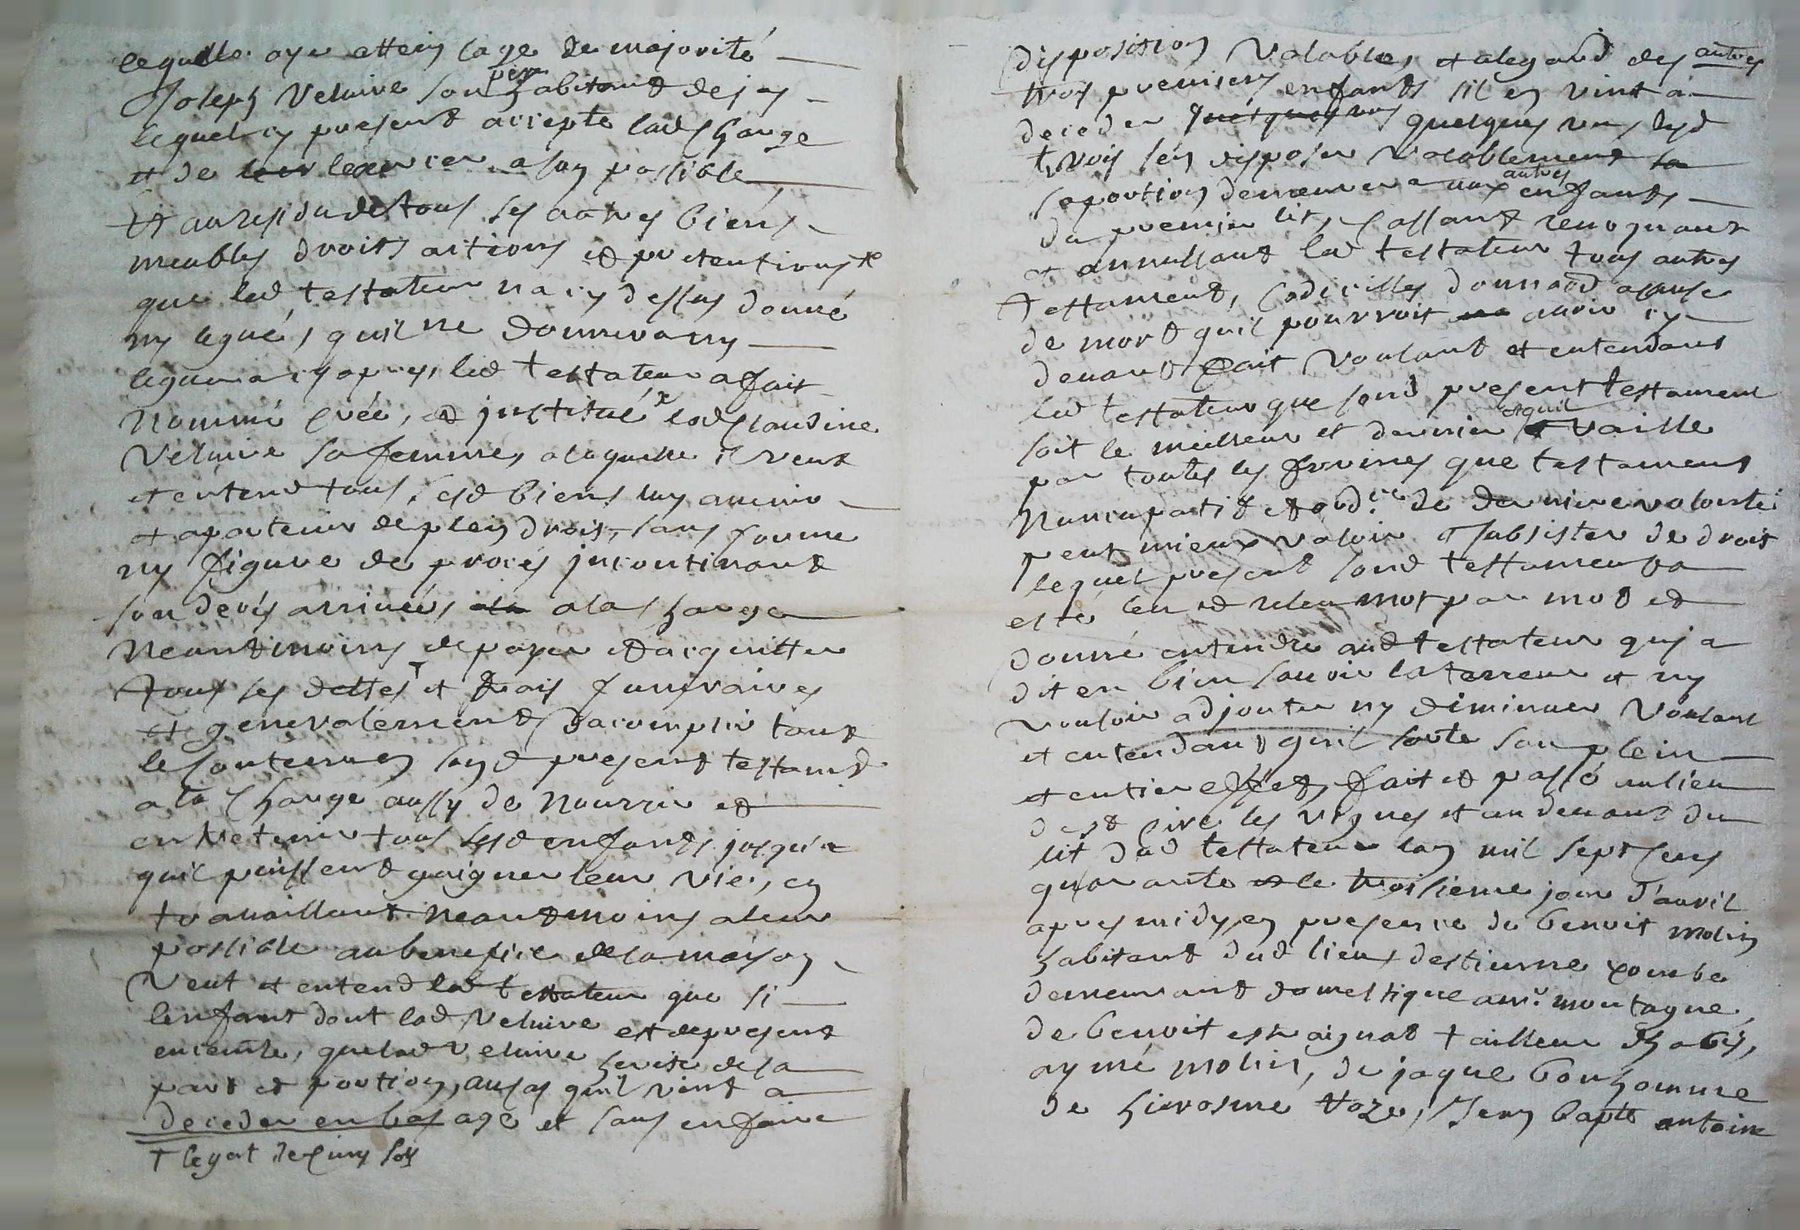 lequelle aye attein lage de majorité
Joseph Veluire son père habitant de
lequel cy present accepte lad charge
et de lexercer a son possible
Et au residu de tous ses autres biens
meubles droits actions et pretentions
que led testateur na cy dessus donné
ny legué, quil ne donnera ny
leguera cy apres, led testateur a fait
Nommé créé, et institué lad Claudine
Veluire sa femme, a laquelle il veut
et entend tous sesd biens luy avenir
et apartenir de plein droit, sans forme
ny figure de procés incontinant
son decés arrivé, a la charge
Neantmoins de payer et acquitter
tous ses dettes et frais funeraires
et generalement d'acomplir tout
le contenu en sond present testamt
a la Charge aussy de nourrir et
entretenir tous sesd enfants jusqu'a
quil puissent gaigner leur vie, en
travaillant neantmoins a leur
possible au benefice de la maison
Veut et entend led testateur que si
lenfant dont lad Veluire est de present
enceinte, que lad Veluire herite de sa
part et portion, au cas quil vint a
deceder en bas age et sans en faire
† legat de cinq sols
disposition valable, et a legard des autres
trois premiers enfants sil en vint a
deceder quelques uns quelques uns desd
trois sen disposer valablement sa
sa portion demeurera aux autres enfants
du premier lit, Cassant revoquant
et annullant led testateur tous autres
testament, Codicilles donnaon a cause
de mort quil pourroit avoir cy
devant fait Voulant et entendant
led testateur que sond present testament
soit le meilleur et dernier et quil vaille
par toutes les formes que testament
Nuncupatif et ordre de derniere volonté
peut mieux valoir et subsister de droit
lequel present sond testament a
esté leu et releu mot par mot et
donné entendre aud testateur qui a
dit en bien scavoir la teneur et ny
vouloir adjouter ny diminuer Voulant
et entendant quil sorte son plein
et entier effet, fait et passé au lieu
les vignes et au devant du
lit dud testateur lan mil sept cens
quarante et le troisieme jour d'avril
apres midy, en presence de benoit molin
habitant dud lieu, destienne combe
demeurant domestique a mr montagne,
de benoit tailleur d'habis,
aymé molin, de jaque bonhomme
de hierosme voze, Jean bapte antoine